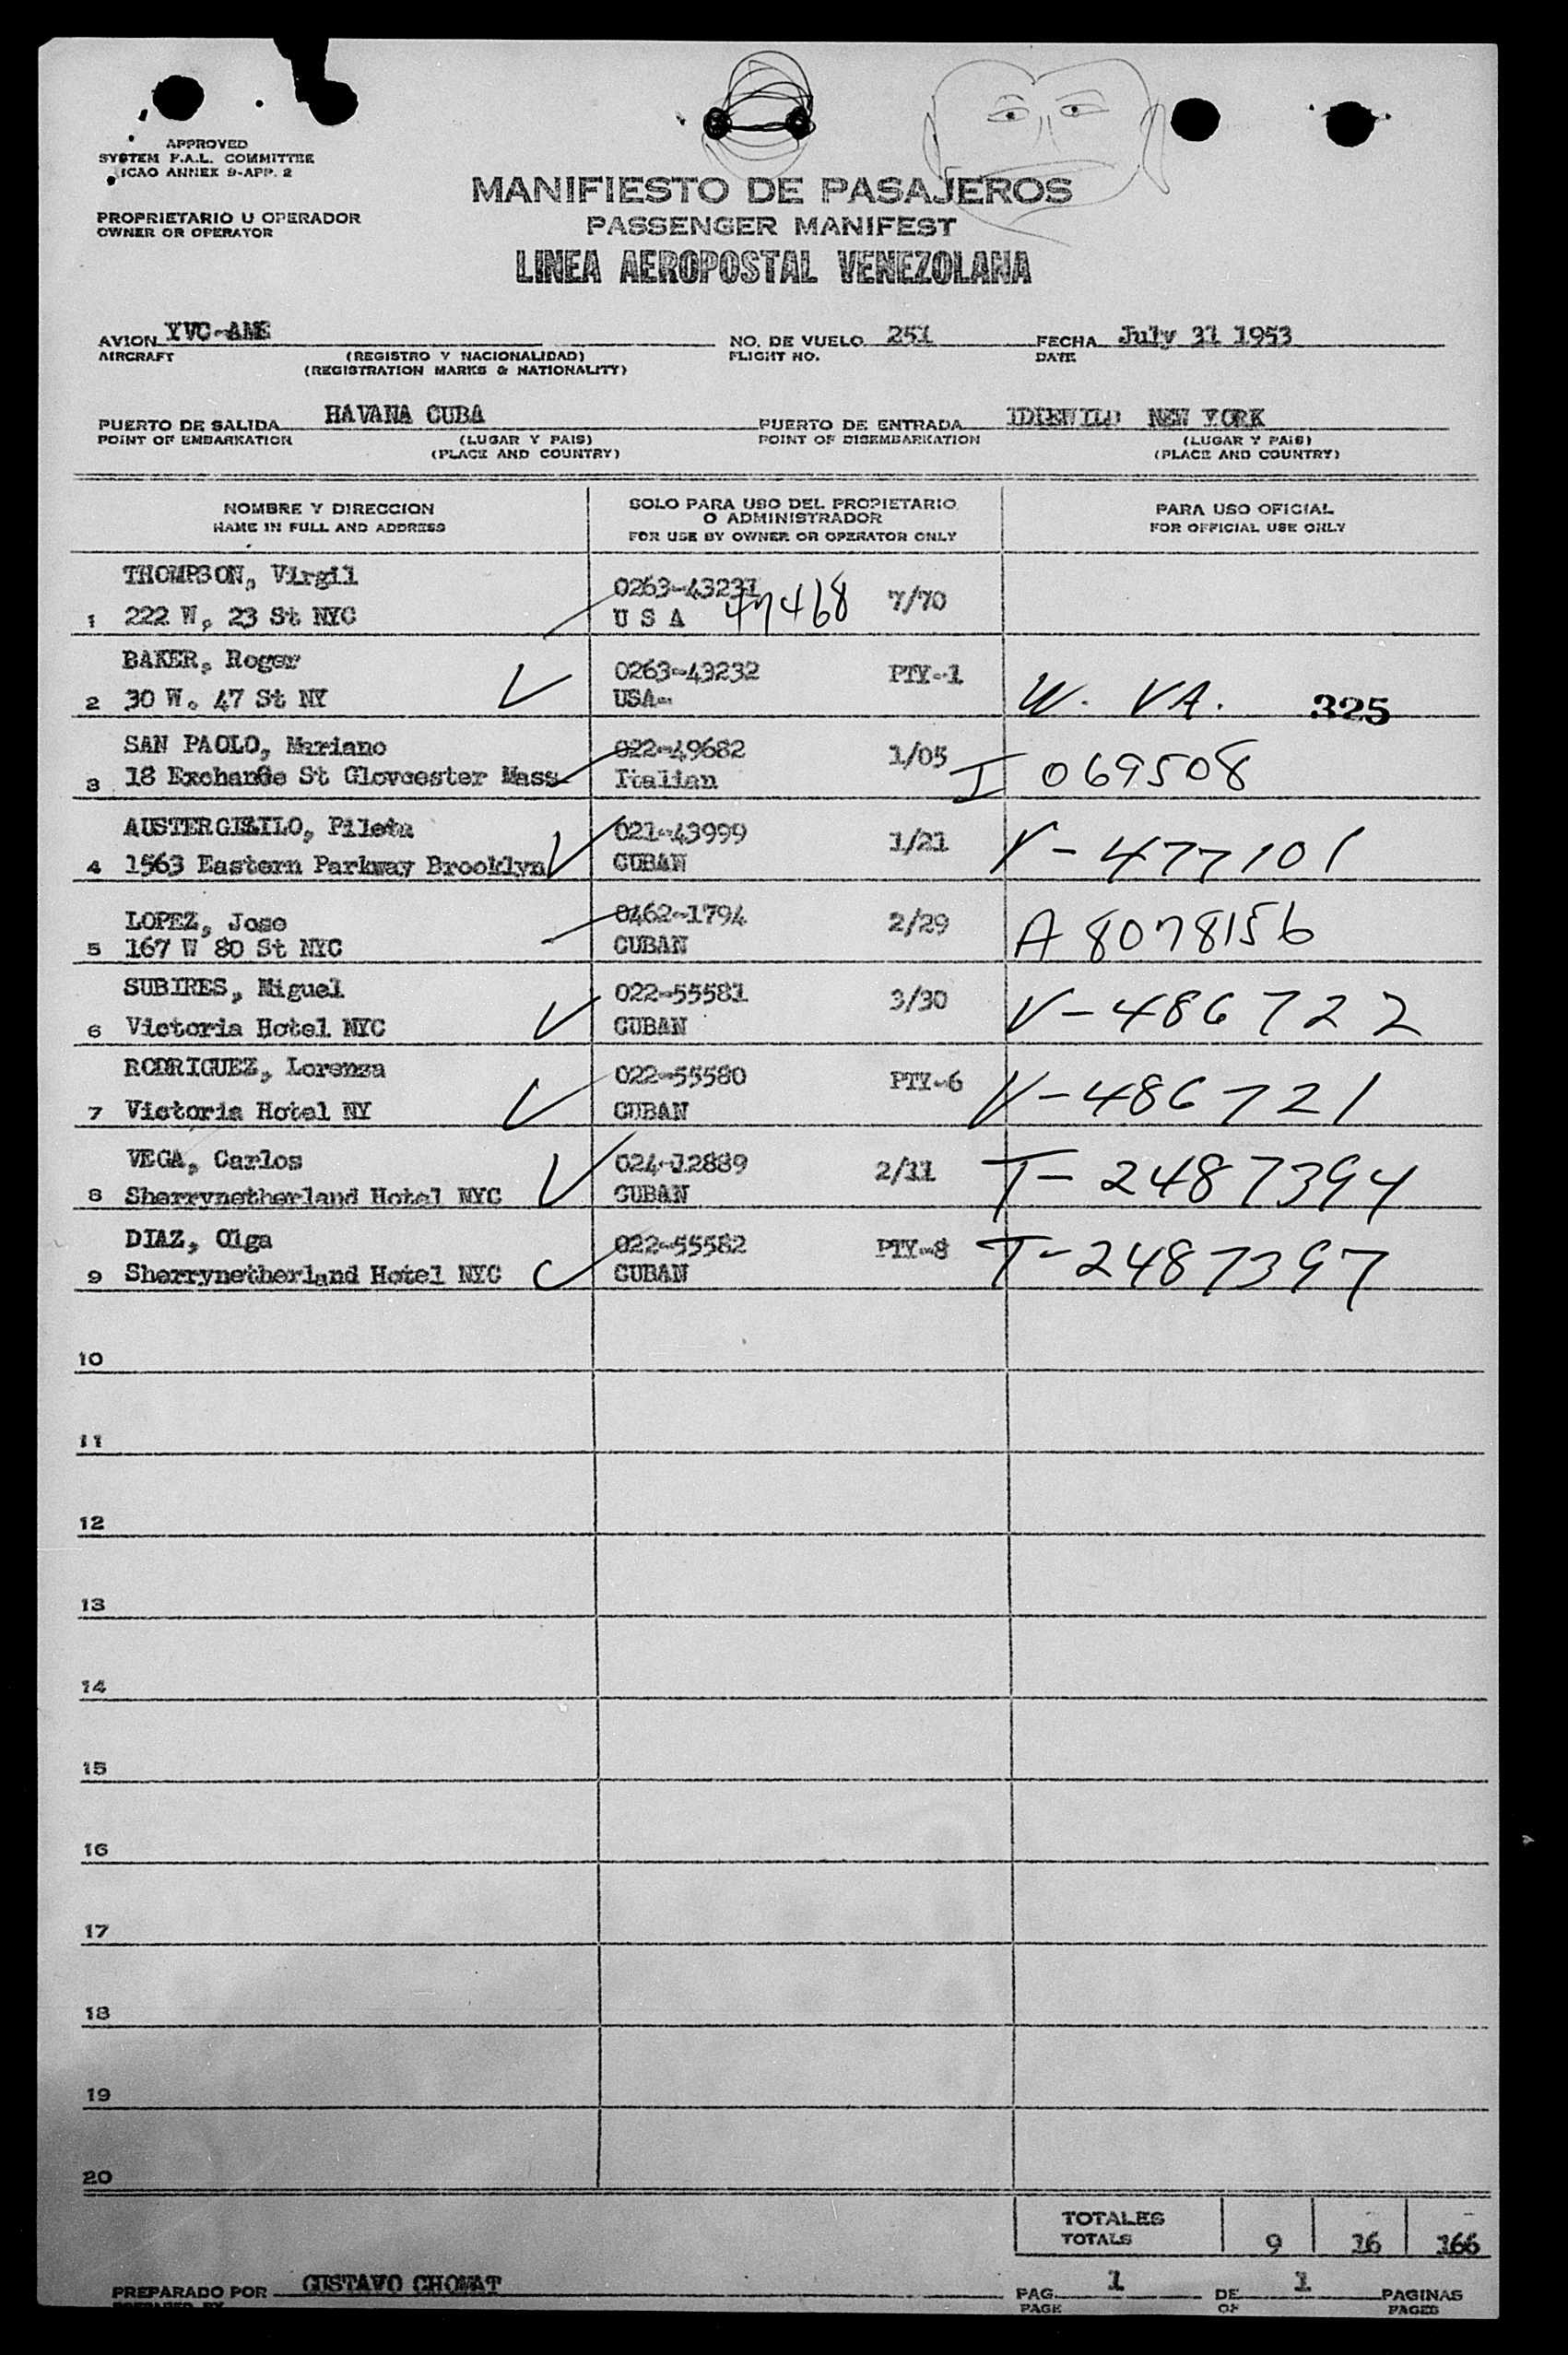 APPROVED
SYSTEM F.A.L. COMMITTEE
ICAO ANNEX 9-APP. 2
PROPRIETARIO U OPERADOR
OWNER OR OPERATOR
MANIFIESTO DE PASAJEROS
PASSENGER MANIFEST
LINEA AEROPOSTAL VENEZOLANA
AVION YVC-AME NO. DE VUELO 251 FECHA July 31 1953
AIRCRAFT (REGISTRO Y NACIONALIDAD) FLIGHT NO. DATE
(REGISTRATION MARKS & NATIONALITY)
PUERTO DE SALIDA HAVANA CUBA PUERTO DE ENTRADA IDIEWILD NEW YORK
POINT OF EMBARKATION (LUGAR Y PAIS) POINT OF DISEMBARKATION (LUGAR Y PAIS)
(PLACE AND COUNTRY) (PLACE AND COUNTRY)
NOMBRE Y DIRECCION SOLO PARA USO DEL PROPIETARIO PARA USO OFICIAL
O ADMINISTRADOR
NAME IN FULL AND ADDRESS FOR USE BY OWNER OR OPERATOR ONLY FOR OFFICIAL USE ONLY
THOMPSON, Virgil 0263-43231 7/70
1 222 W. 23 St NYC U S A 47468
BAKER, Roger 0263-43232 PTY-1
2 30 W. 47 St NY USA- W. VA. 325
SAN PAOLO, Mariano 022-49682 1/05
3 18 Exchange St Glovcester Mass Italian I 069508
021-43999 1/21
4 1563 Eastern Parkway Brooklyn CUBAN V-477101
LOPEZ, Jose 0462-1794 2/29
5 167 W 80 St NYC CUBAN A 8078156
SUBIRES, Miguel 022-55581 3/30
6 Victoria Hotel NYC CUBAN V-486722
RODRIGUEZ, Lorenza 022-55580 PTY-6
7 Victoria Hotel NY CUBAN V-486721
VEGA, Carlos 024-12889 2/11
8 Sherrynetherland Hotel NYC CUBAN T-2487394
DIAZ, Olga 022-55582 PTY-8
9 Sherrynetherland Hotel NYC CUBAN T-2487397
10
11
12
13
14
15
16
17
18
19
20
TOTALES
TOTALS 9 16 166
PREPARADO POR GUSTAVO CHOMAT PAG. 1 DE 1 PAGINAS
PREPARED BY PAGE OF PAGES